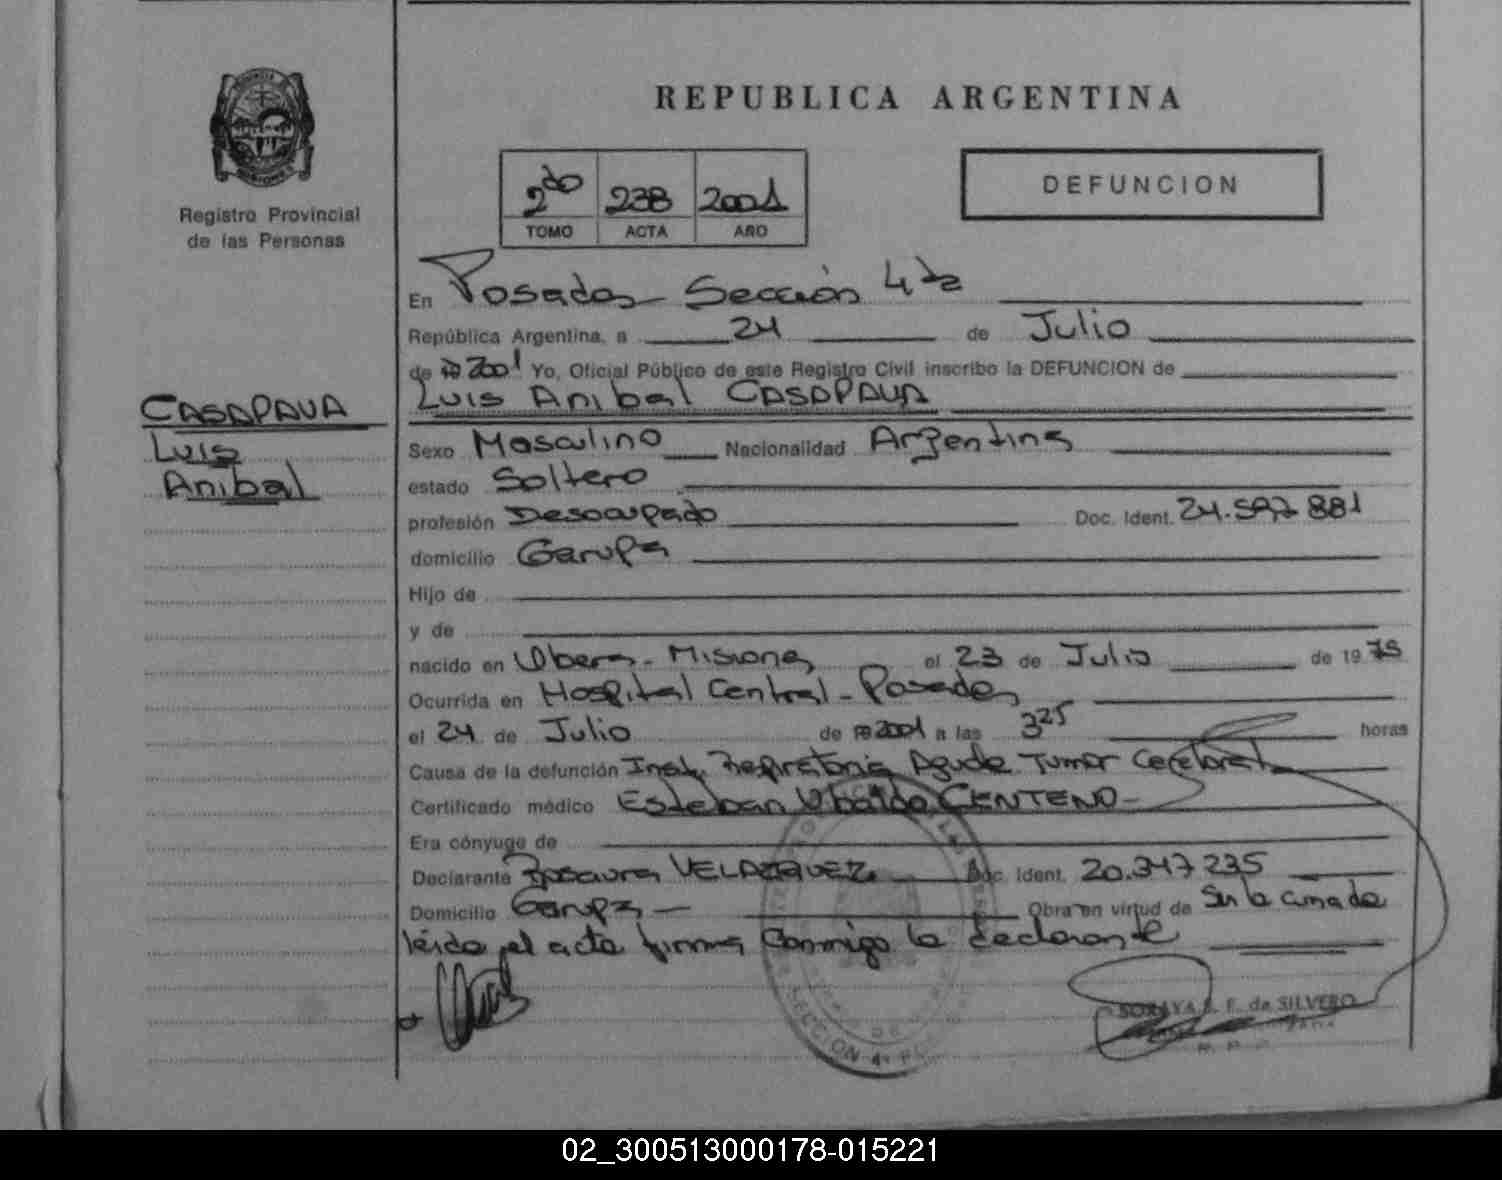 REPUBLICA ARGENTINA
Registro Provincial
de las Personas
2do 238 2001
TOMO ACTA AÑO
DEFUNCION
En Posadas Sección 4ta
República Argentina, a 24 de Julio
de 19 2001 Yo, Oficial Público de este Registro Civil inscribo la DEFUNCION de
Luis Anibal CASAPAUA
CASAPAUA
Luis
Anibal
Sexo Masculino Nacionalidad Argentina
estado Soltero
profesión Desocupado Doc. Ident. 24.597 881
domicilio Garupa
Hijo de
y de
nacido en Obera - Misiones el 23 de Julio de 1975
Ocurrida en Hospital Central - Posadas
el 24 de Julio de 19 2001 a las 3 25 horas
Causa de la defunción Insf. Respiratoria Aguda Tumor Cerebral
Certificado médico Esteban Ubaldo CENTENO -
Era cónyuge de
Declarante Rosaura VELAZQUEZ. Doc. Ident. 20.347 235
Domicilio Garupa - Obra en virtud de Ser la
leida el acta firma conmigo la declarante
SORAYA E. F. de SILVERO
SECCION 4ª
02_300513000178-015221